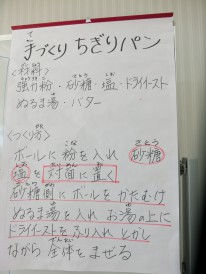 手づくり ちぎりパン
<材料>
強力粉・砂糖・塩・ドライイースト
ぬるま湯・バター
<つくり方>
ボールに粉を入れ 砂糖
塩を対面に置く
砂糖側にボールをかたむけ
ぬるま湯を入れ お湯の上に
ドライイーストをふり入れ とかし
ながら 全体をまぜる